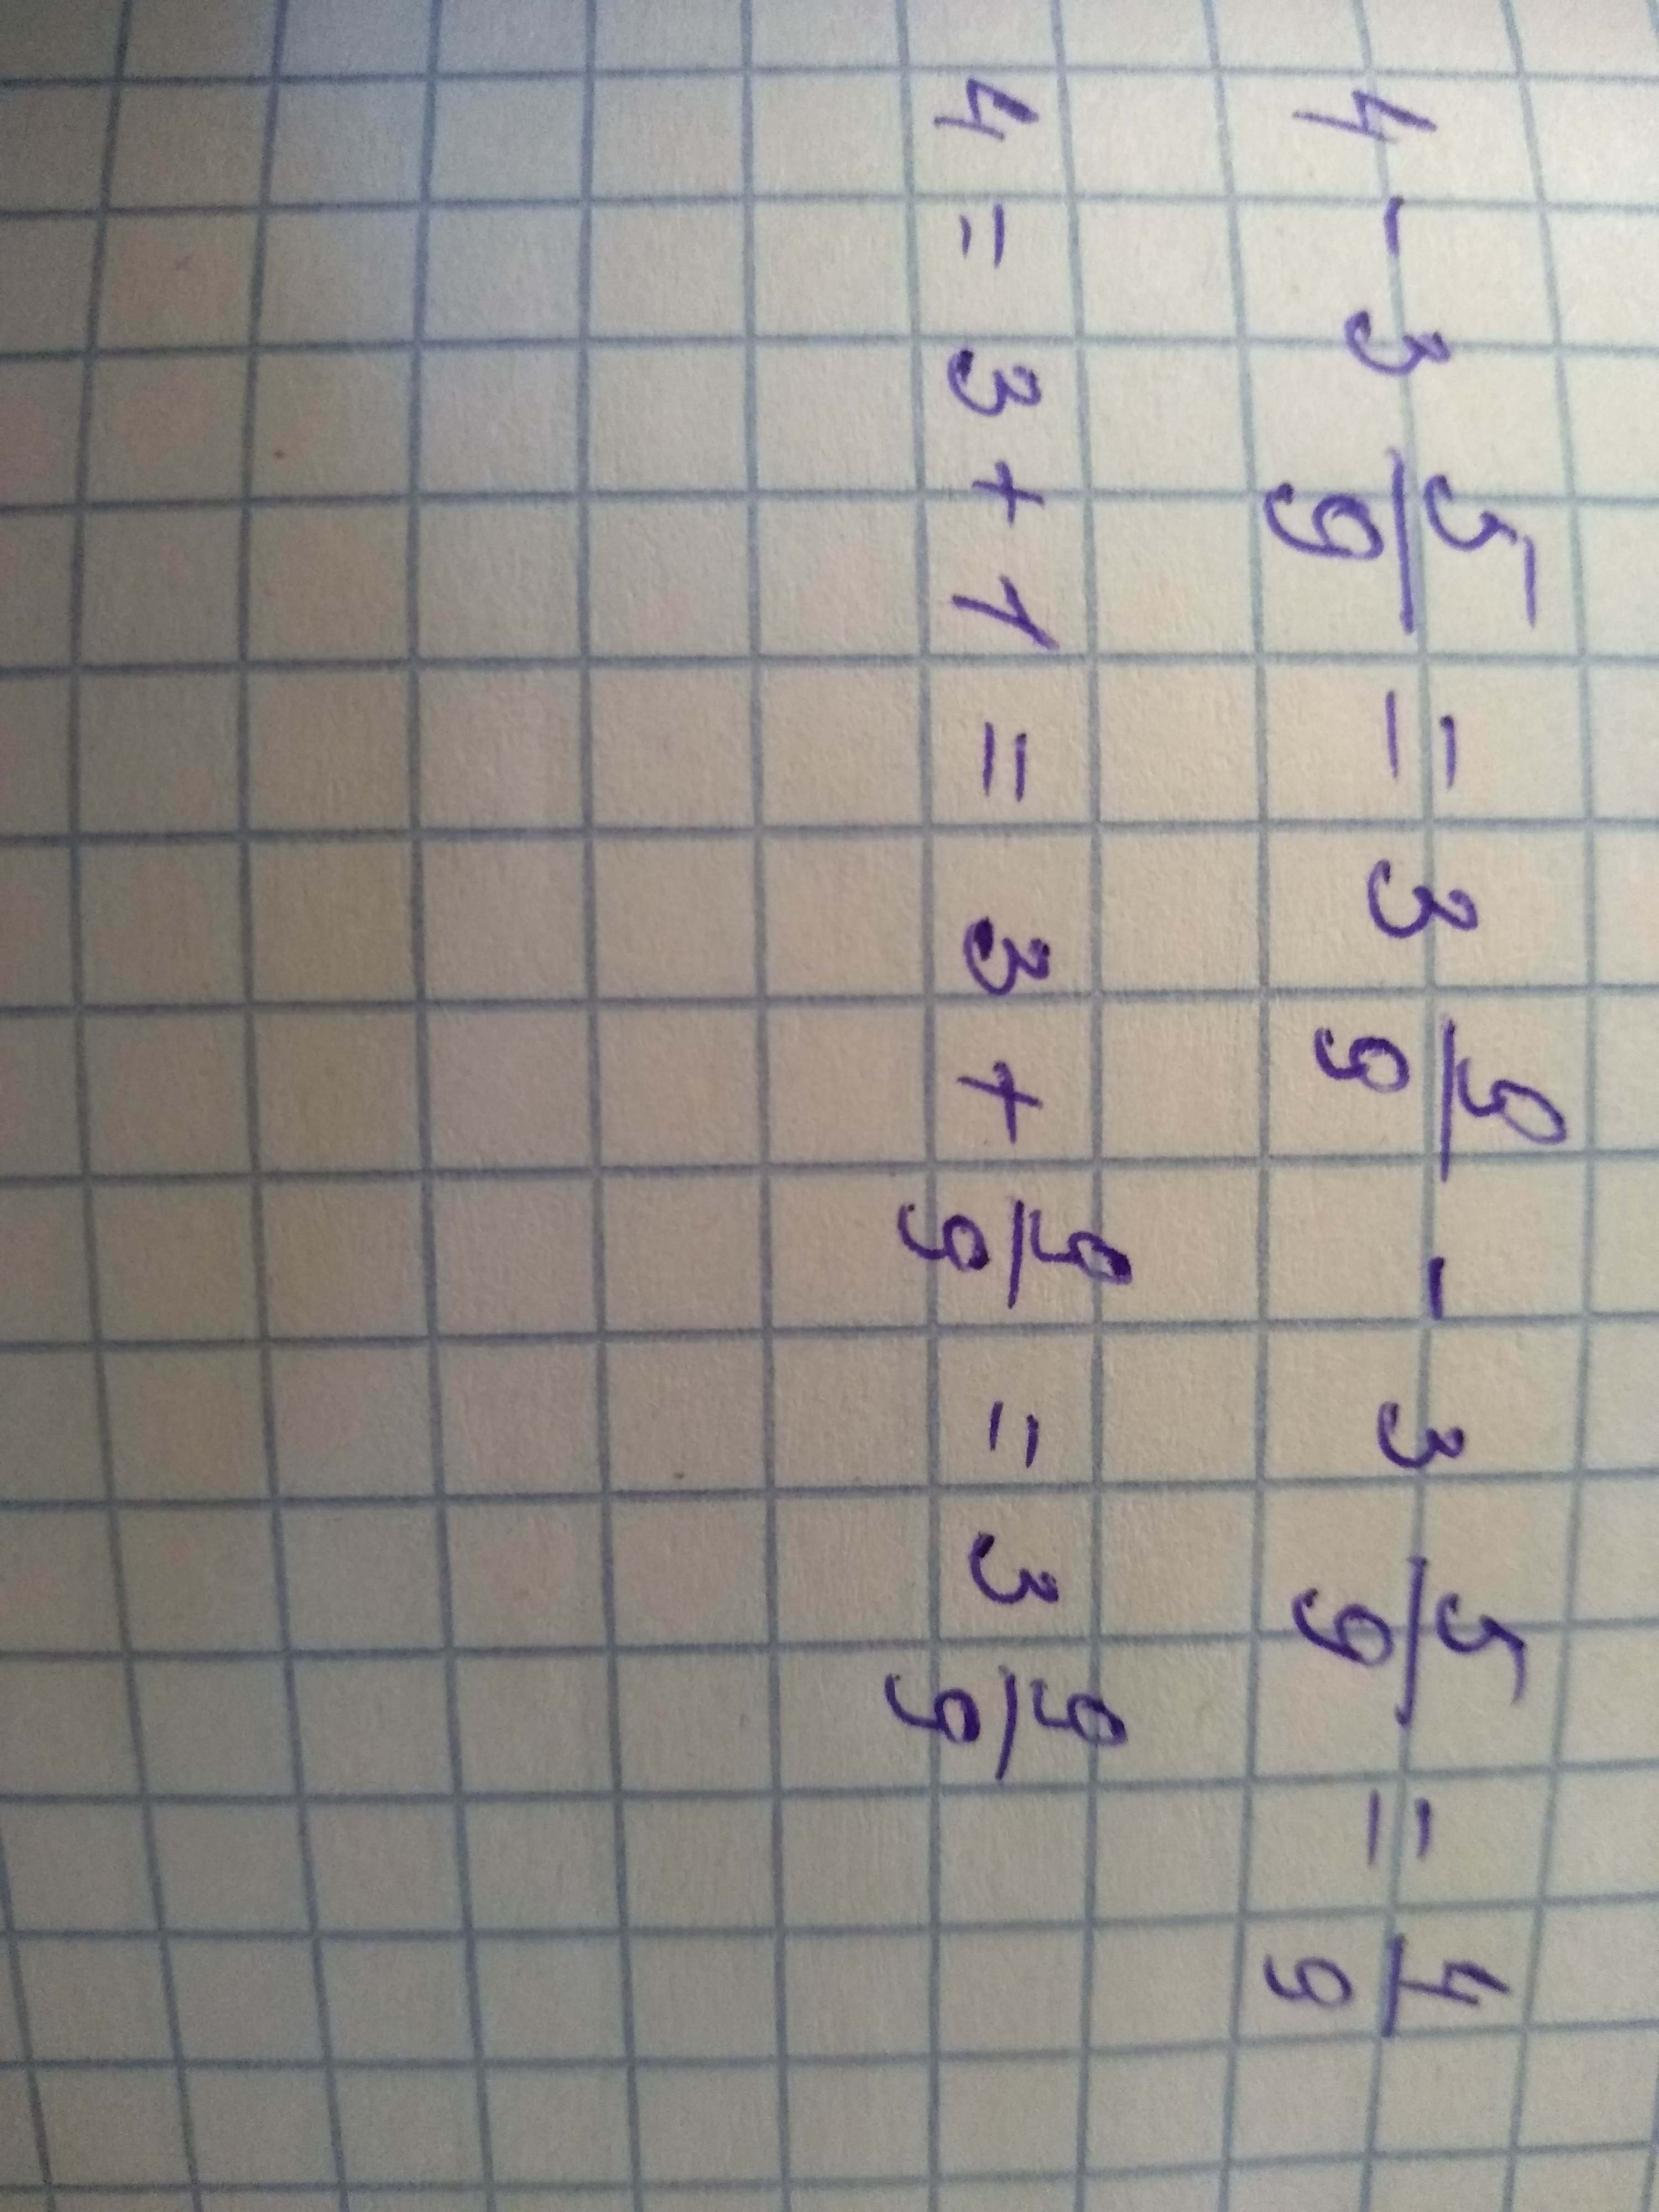 4 - 3 5/9 = 3 9/9 - 3 5/9 = 4/9
4 = 3 + 1 = 3 + 9/9 = 3 9/9